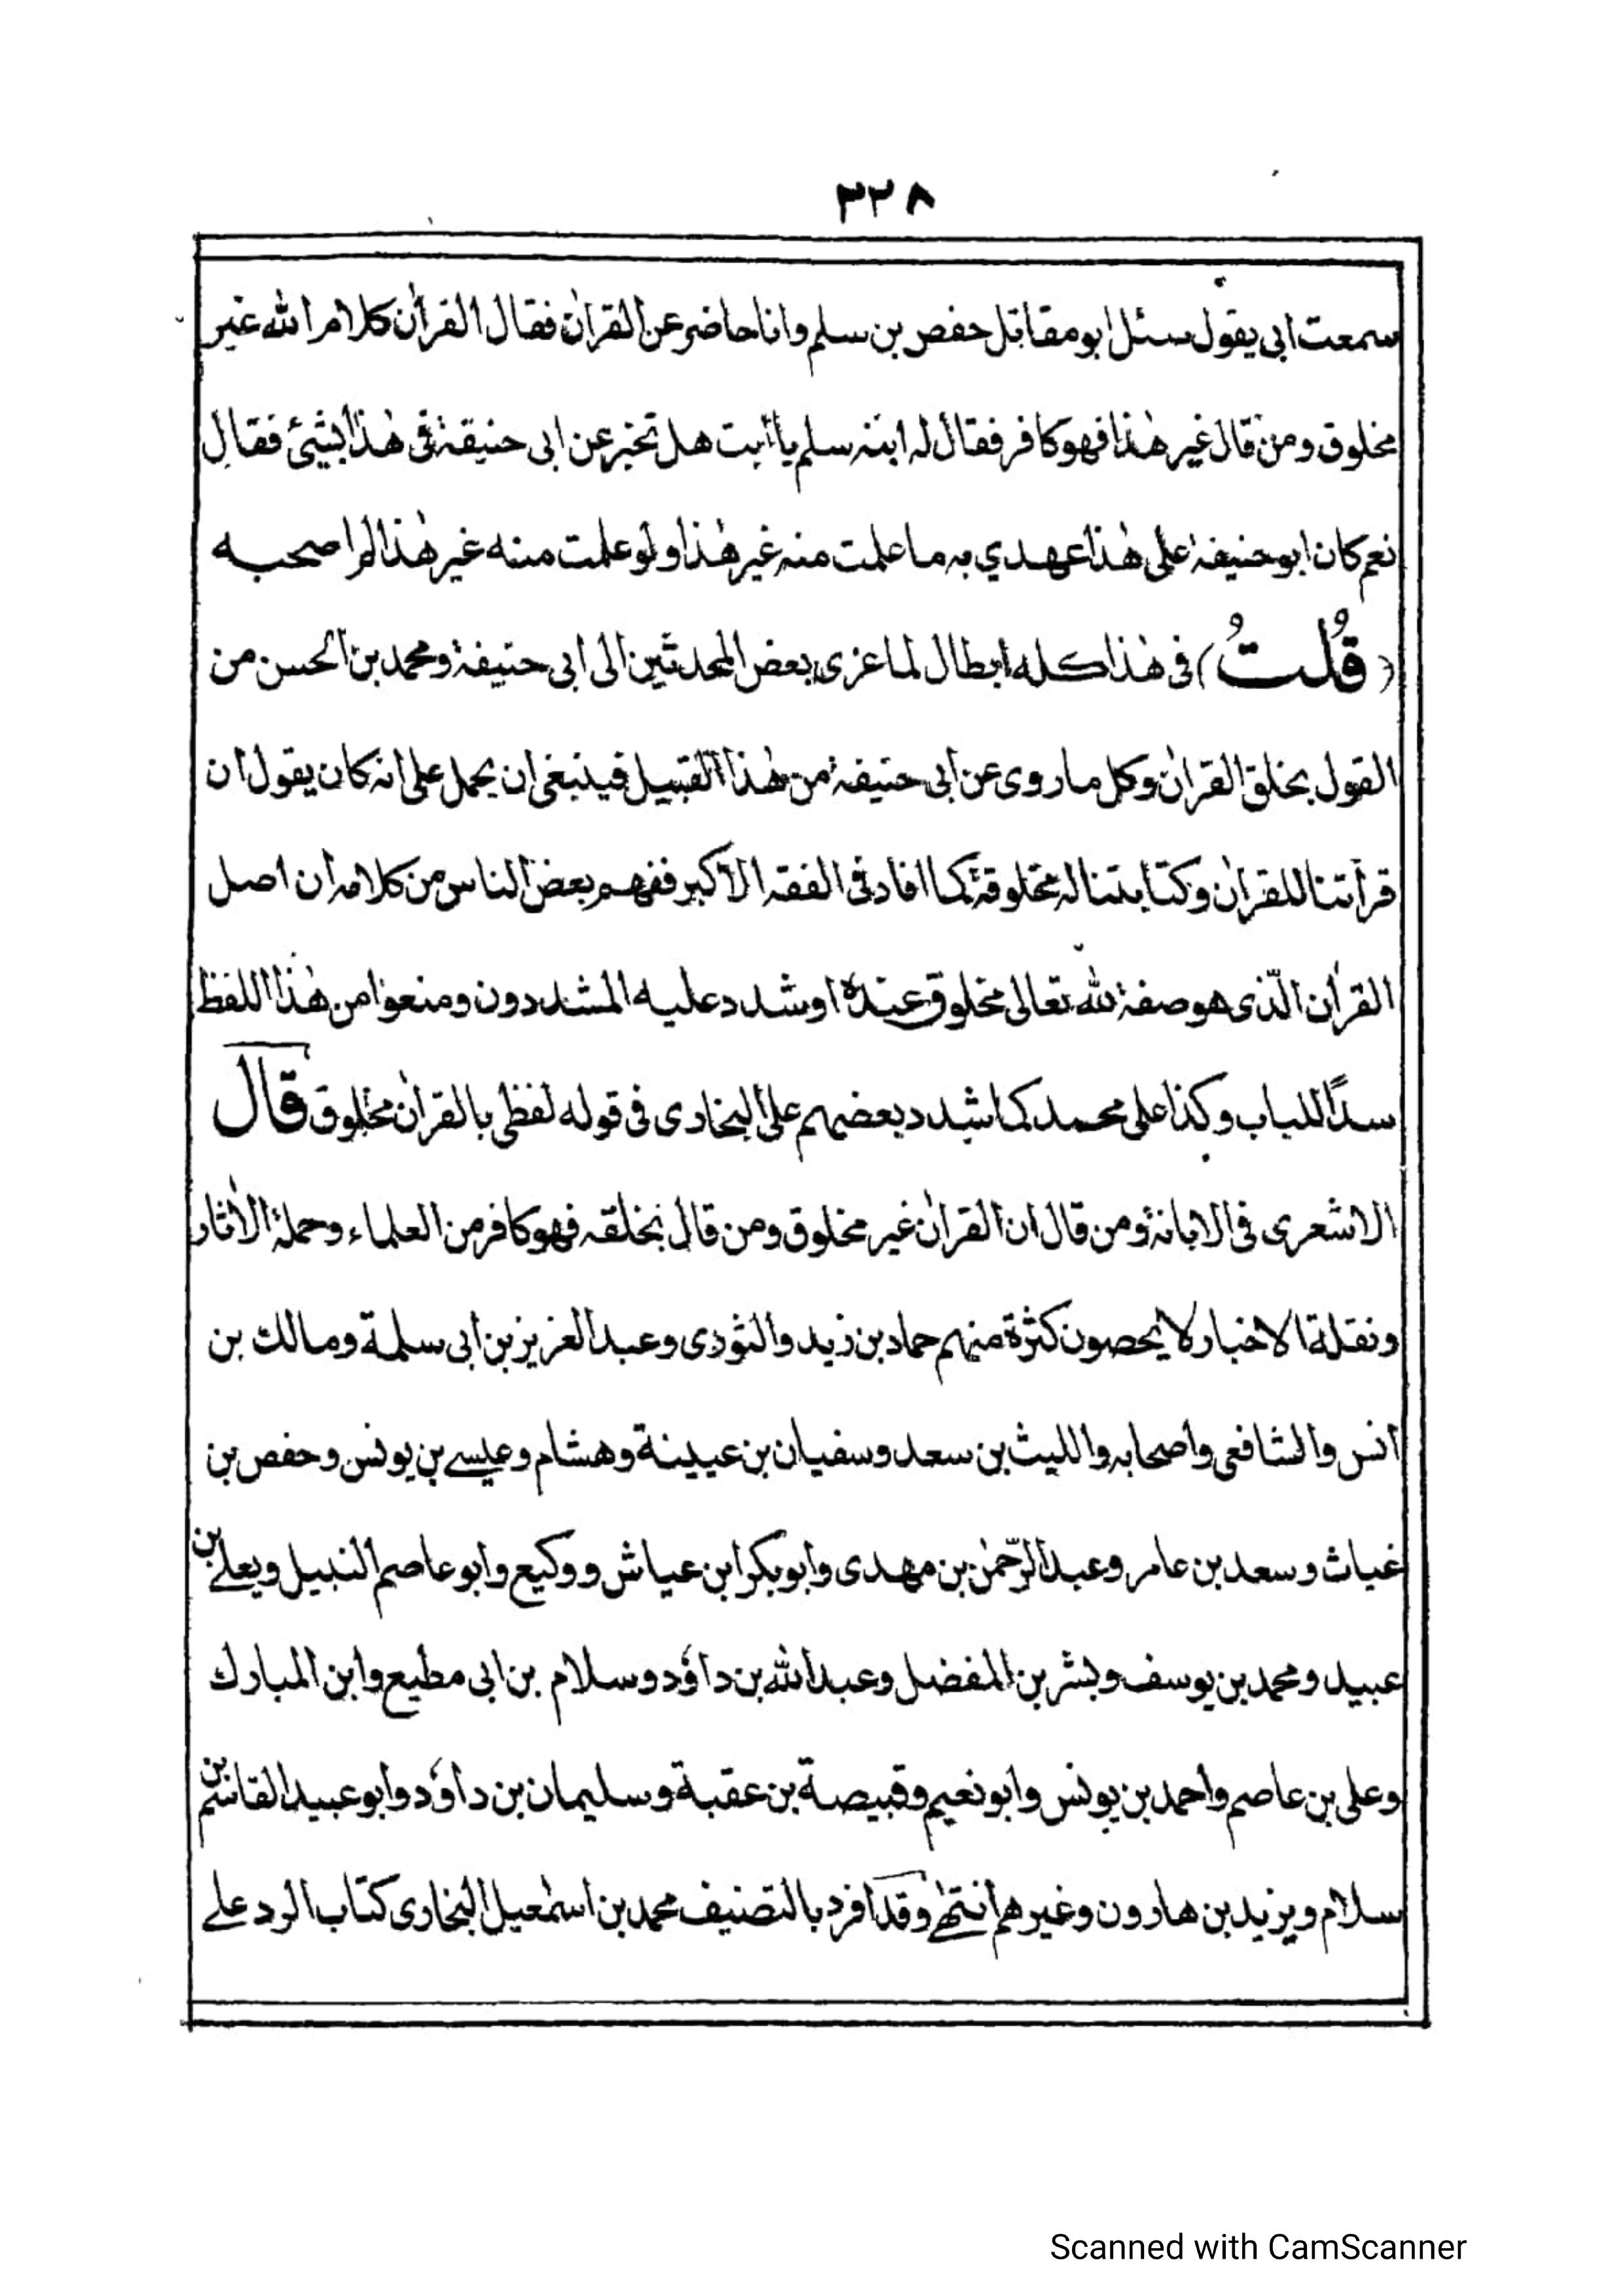 ٣٢٨
سمعت ابی یقول سئل ابو مقاتل حفص بن سلم وانا حاضر عن القراٰن فقال القراٰن کلام اللہ غیر
مخلوق ومن قال غیر ھٰذا فھو کافر فقال لہ ابنہ سلم یا ابت ھل تخبر عن ابی حنیفۃ فی ھٰذا بشیئ فقال
نعم کان ابو حنیفۃ علی ھٰذا عھدي بہ ما علمت منہ غیر ھٰذا ولو علمت منہ غیر ھٰذا لم اصحبہ
(قُلتُ) فی ھٰذا کلہ ابطال لما عزی بعض المحدثین الی ابی حنیفۃ ومحمد بن الحسن من
القول بخلق القراٰن وکل ما روی عن ابی حنیفۃ من ھٰذا القبیل فینبغی ان یحمل علی انہ کان یقول ان
قرآتنا للقراٰن وکتابتنا لہ مخلوقۃ کما افاد فی الفقہ الاکبر ففھم بعض الناس من کلامہ ان اصل
القراٰن الّذی ھو صفۃ للہ تعالی مخلوق عندہ او شدد علیہ المشددون ومنعوا من ھٰذا اللفظ
سدًّا للباب وکذا علی محمد کما شدد بعضھم علی البخاری فی قولہ لفظی بالقراٰن مخلوق قال
الاشعری فی الابانۃ ومن قال ان القراٰن غیر مخلوق ومن قال بخلقہ فھو کافر من العلماء وحملۃ الاٰثار
ونقلة الاخبار لا یحصون کثرة منھم حماد بن زید والثوری وعبد العزیز بن ابی سلمة ومالک بن
انس والشافعی واصحابہ واللیث بن سعد وسفیان بن عیینة وھشام وعیسے بن یونس وحفص بن
غیاث وسعد بن عامر وعبد الرّحمٰن بن مھدی وابو بکر ابن عیاش ووکیع وابو عاصم النبیل ویعلے بن
عبید ومحمد بن یوسف وبشر بن المفضل وعبد اللہ بن داوٗد وسلام بن ابی مطیع وابن المبارک
وعلی بن عاصم واحمد بن یونس وابو نعیم وقبیصة بن عقبة وسلیمان بن داوٗد وابو عبید القاسم بن
سلام ویزید بن ھارون وغیرھم انتھٰے وقد افرد بالتصنیف محمد بن اسمٰعیل البخاری کتاب الرد علے
Scanned with CamScanner